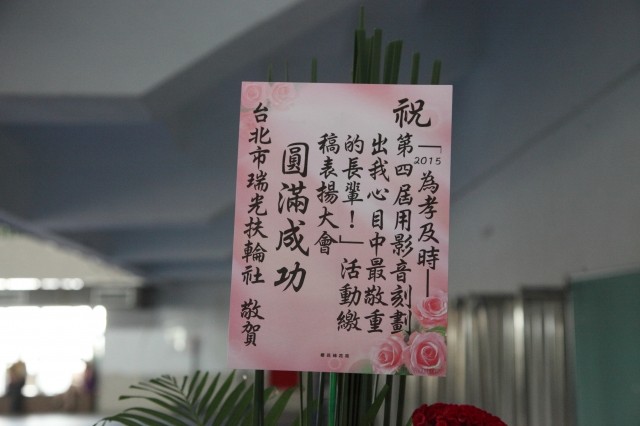 祝
2015「為孝及時—
第四屆用影音刻劃
出我心目中最敬重
的長輩！」活動繳
稿表揚大會
圓滿成功
台北市瑞光扶輪社 敬賀